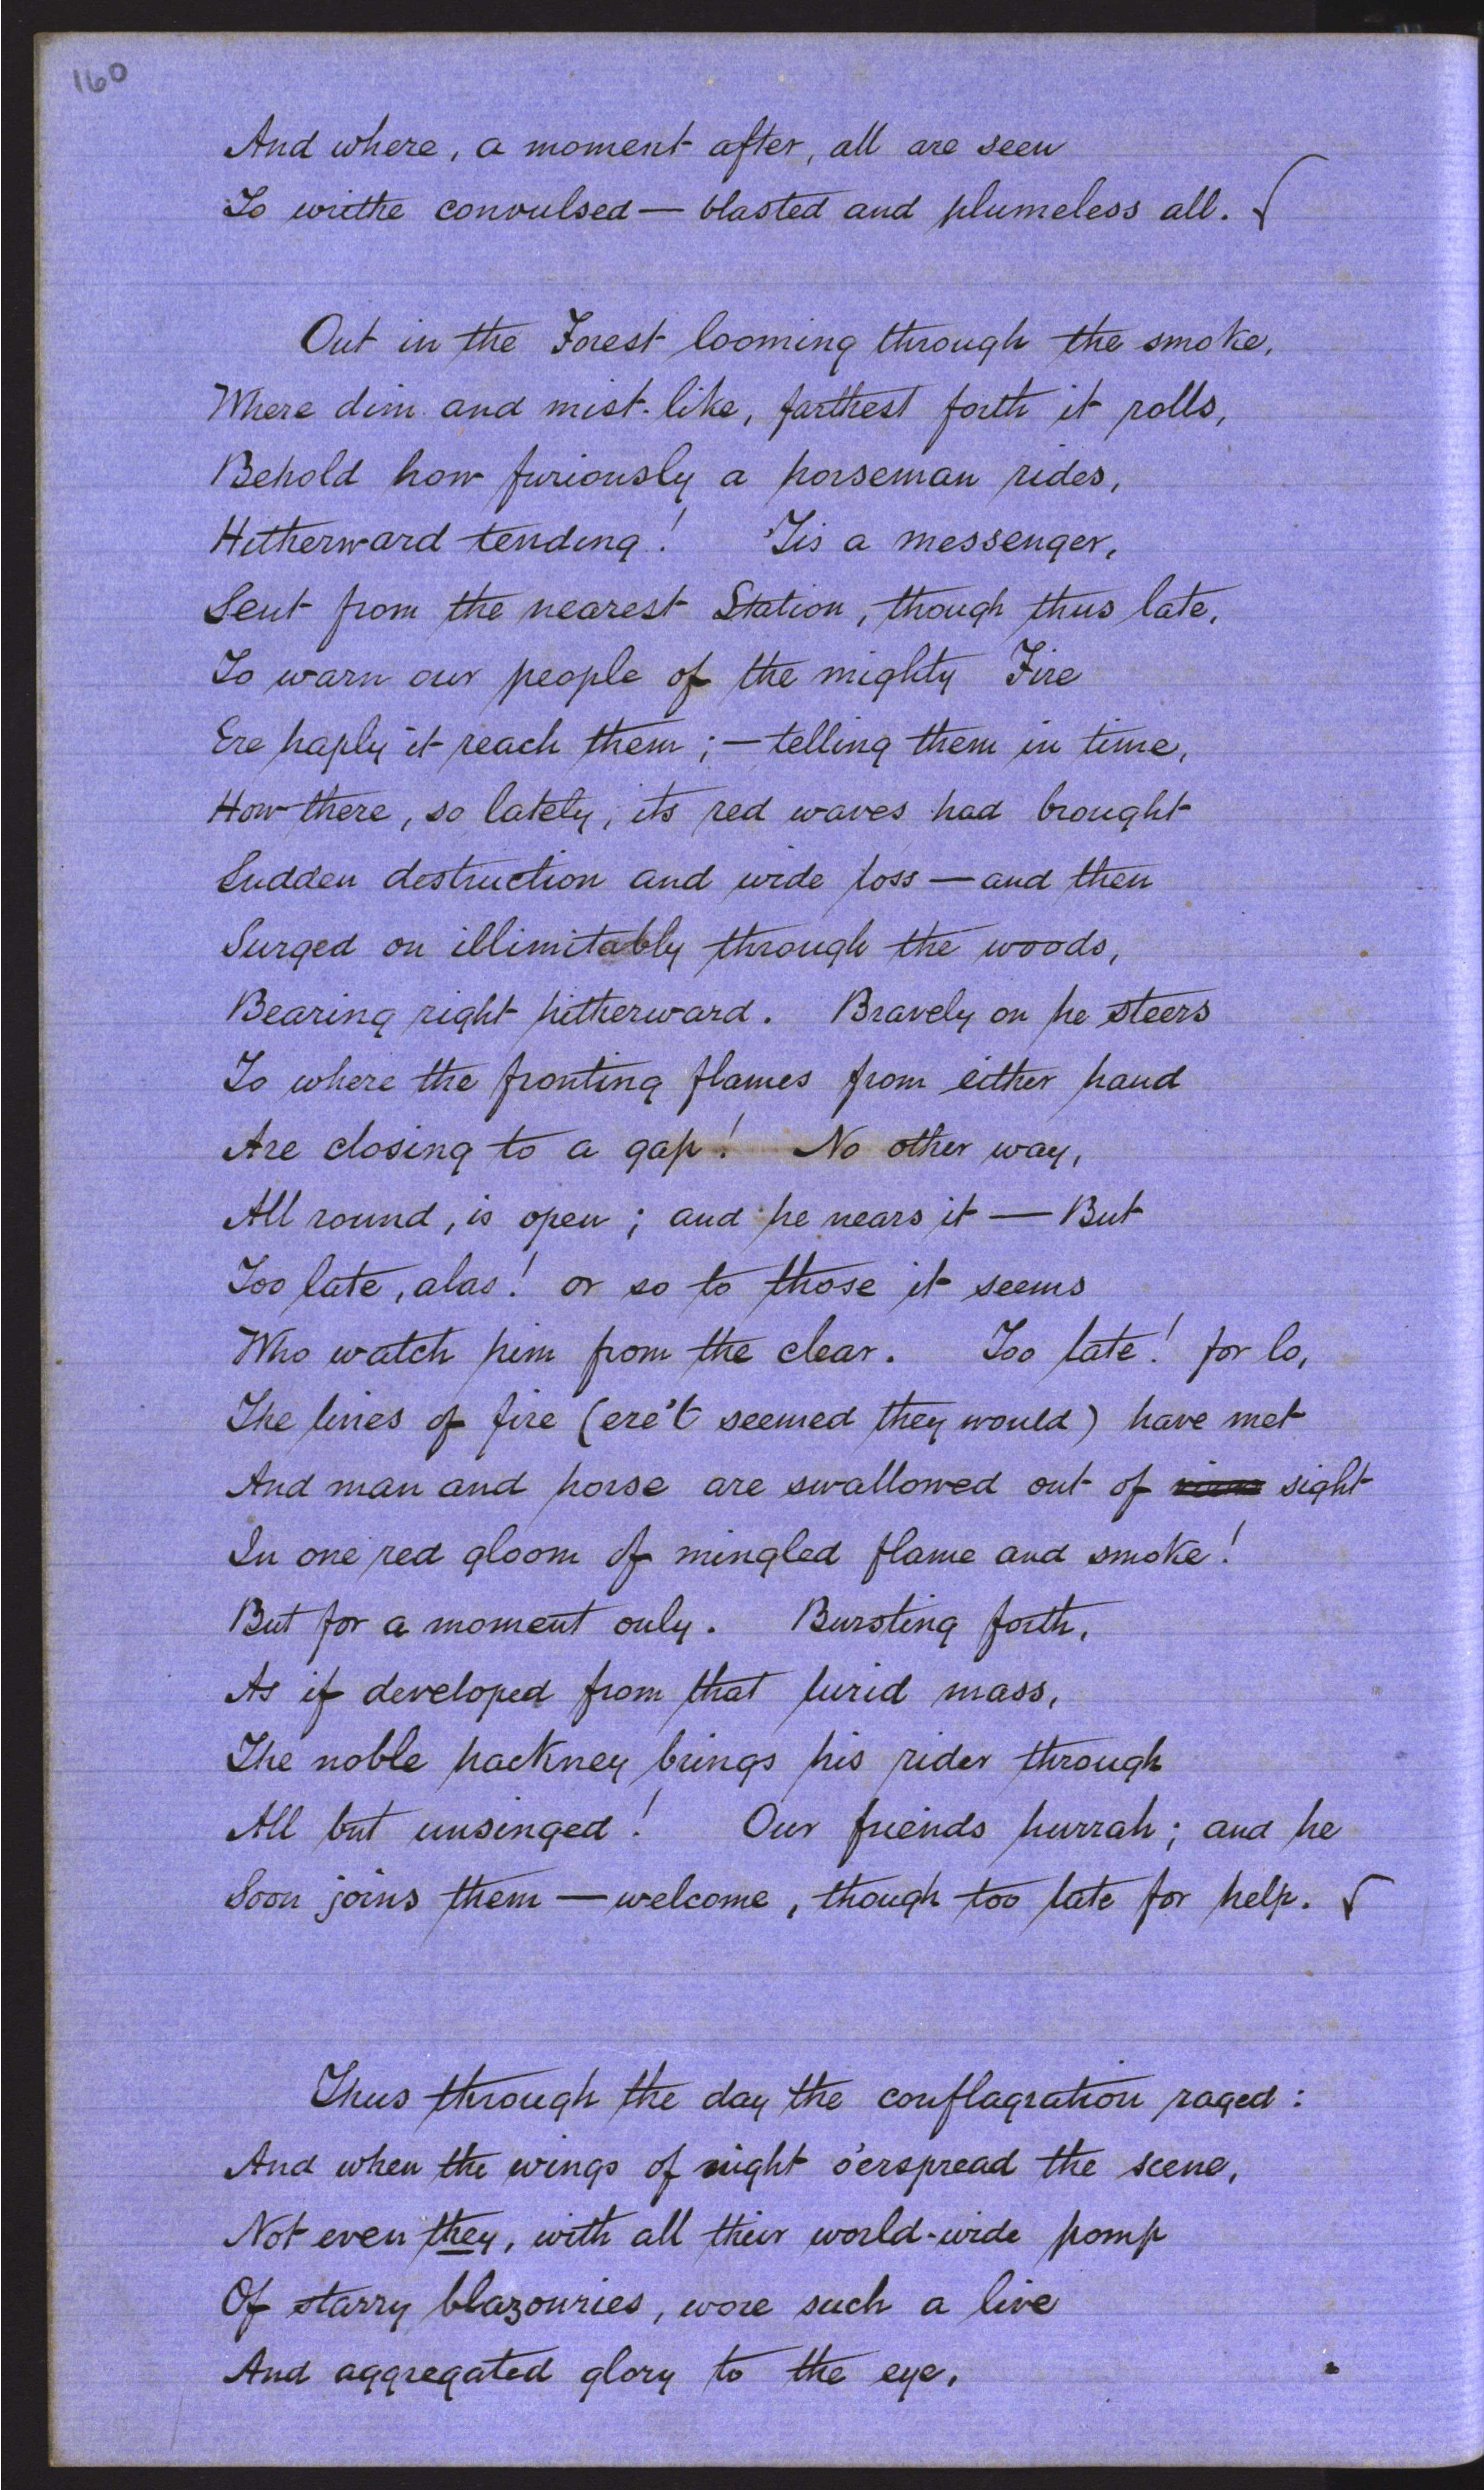 160
And where, a moment after, all are seen
To writhe convulsed — blasted and plumeless all.
Out in the Forest looming through the smoke,
Where dim and mist-like, farthest forth it rolls,
Behold how furiously a horseman rides,
Hitherward tending! 'Tis a messenger,
Sent from the nearest Station, though thus late,
To warn our people of the mighty Fire
Ere haply it reach them; — telling them in time,
How there, so lately, its red waves had brought
Sudden destruction and wide loss — and then
Surged on illimitably through the woods,
Bearing right hitherward. Bravely on he steers
To where the fronting flames from either hand
Are closing to a gap! No other way,
All round, is open; and he nears it — But
Too late, alas! or so to those it seems
Who watch him from the clear. Too late! for lo,
The lines of fire (ere't seemed they would) have met
And man and horse are swallowed out of sight
In one red gloom of mingled flame and smoke!
But for a moment only. Bursting forth,
As if developed from that lurid mass,
The noble hackney brings his rider through
All but unsinged! Our friends hurrah; and he
Soon joins them — welcome, though too late for help.
Thus through the day the conflagration raged:
And when the wings of night o'erspread the scene,
Not even they, with all their world-wide pomp
Of starry blazonries, wore such a live
And aggregated glory to the eye,